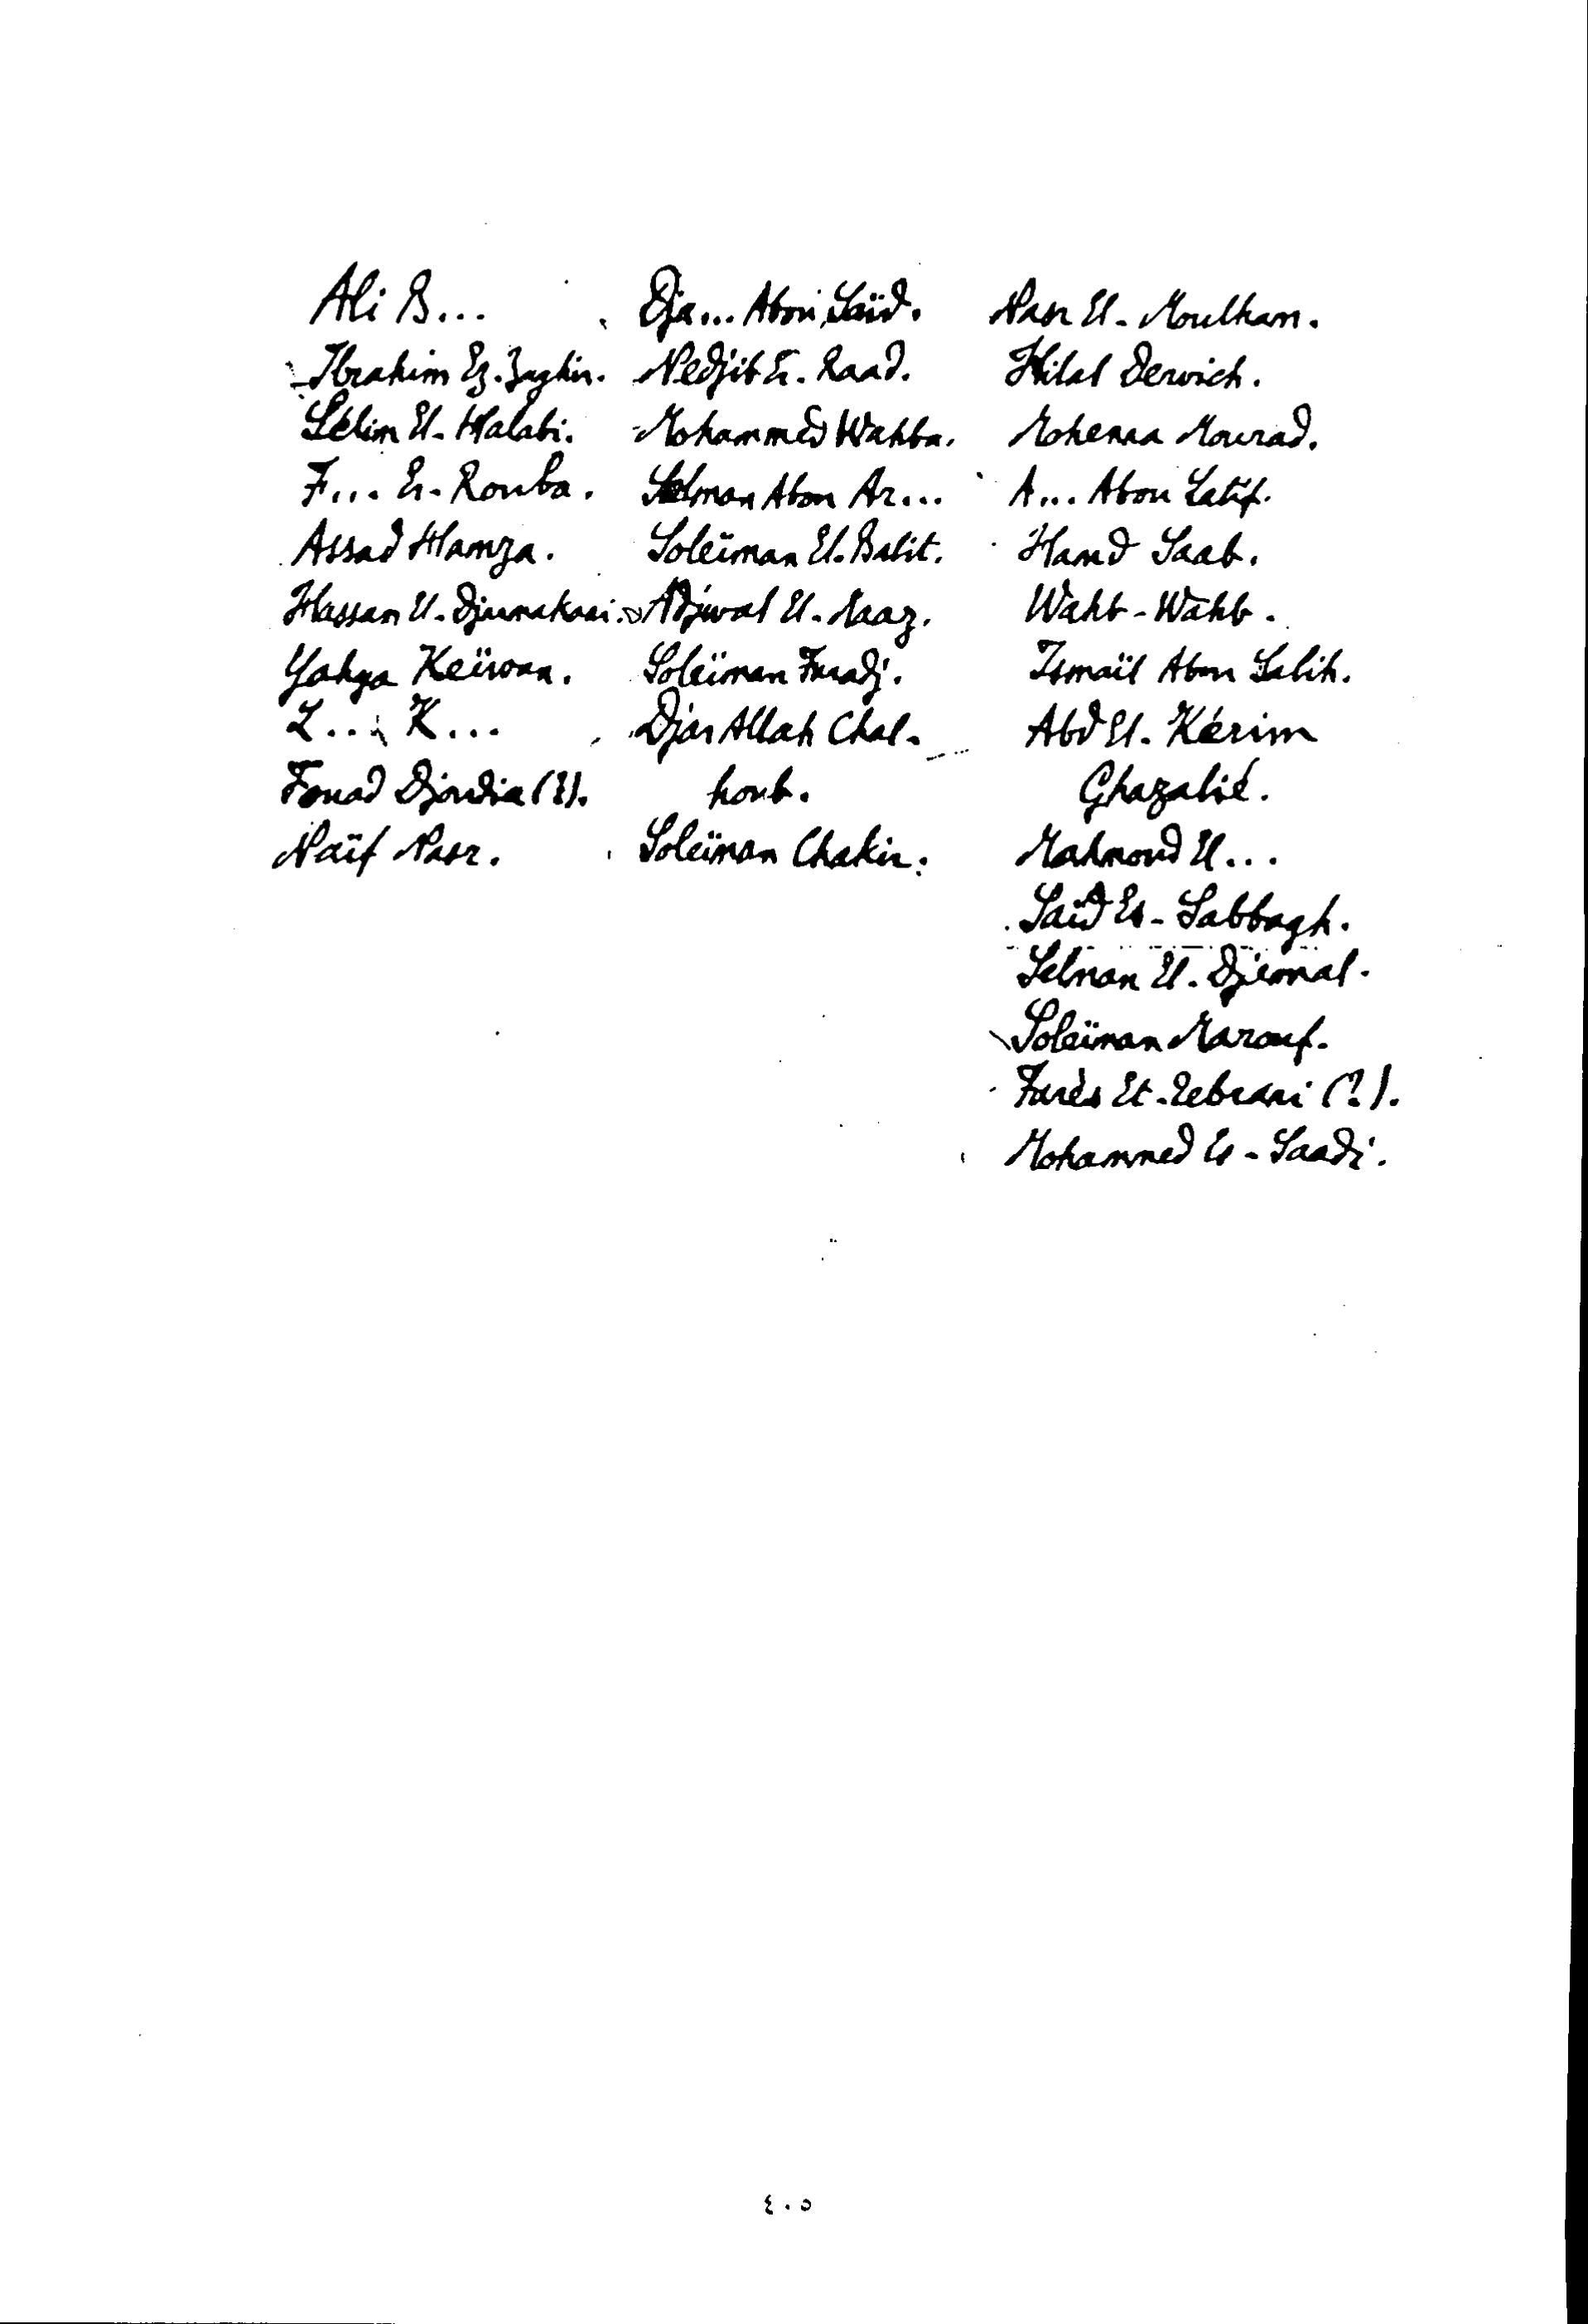 Ali B...
Ibrahim Ez-Zaghir.
Sélim El-Halabi.
F... Er-Rouba.
Assad Hamza.
Hassan El-Djumakani.
Yahya Keïwan.
Z... K...
Fouad Djoudia (?).
Naïf Nasr.
Dja... Abou Saïd.
Nedjib Er-Raad.
Mohammed Wahba.
Selman Abou Ar...
Soleïman El-Balit.
Adjwal El-Maaz.
Soleïman Faradj.
Djar Allah Chal-
houb.
Soleïman Chakir.
Nasr El-Moulham.
Hilal Derwich.
Mohenna Mourad.
A... Abou Latif.
Hamd Saab.
Wahb-Wahb.
Ismaïl Abou Salih.
Abd El-Kérim
Ghazalié.
Mahmoud El...
Saïd Es-Sabbagh.
Selman El-Djemal.
Soleïman Marouf.
Farès Et-Tebrani (?).
Mohammed Es-Saadi.
٤٠٥